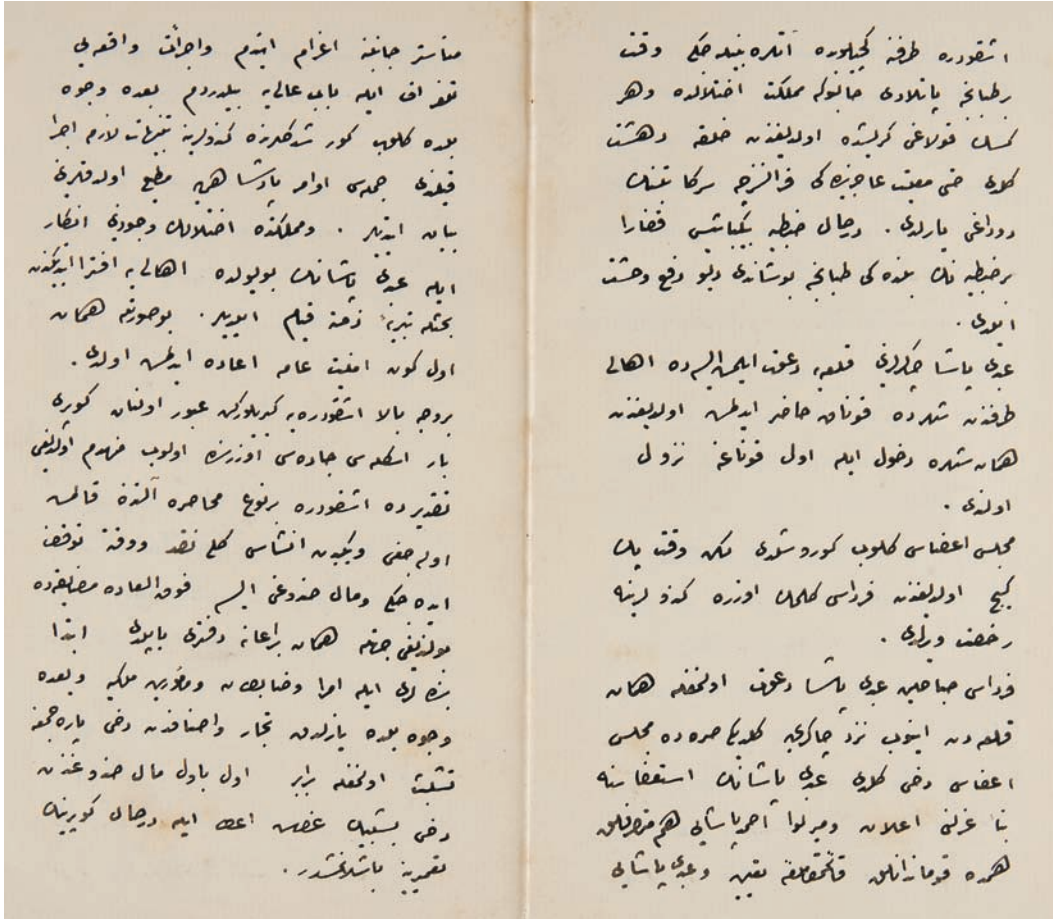 اشقودره طرفنه كچيلورده آتلره بنيله جك وقت
بر طبانجه پاتلادى حالبوكه مملكت اختلالده وهر
كسك قولاغى كريشده اولديغندن خلقه دهشت
كلدى حتى معيت عاجزيده كى فرانسزجه سر كاتبنك
دوداغى يارلدى . درحال ضبطيه بيكباشيسى قضارا
بر ضبطيه نك بلنده كى طبانجه بوشاندى ديو دفع وحشت
ايلدى .
عبدى پاشا چاكرلرينى قلعه يه دعوت ايلمش ايسه ده اهالى
طرفندن شهرده قوناق حاضر ايدلمش اولديغندن
همان شهره دخول ايله اول قوناغه نزول
اولندى .
مجلس اعضاسى كلوب كوروشدى لكن وقت پك
كيج اولديغندن فرداسى كلمك اوزره كندولرينه
رخصت ويرلدى .
فرداسى صباحلين عبدى پاشا دعوت اولنمغله همان
قلعه دن اينوب نزد چاكرى يه كلديكى صره ده مجلس
اعضاسى دخى كلدى عبدى پاشانك استعفاسنه
بنا عزلنى اعلان وميرلوا احمد پاشايى هم متصرفلق
همده قوماندانلق قائممقاملغنه تعيين وعبدى پاشايى
مناستر جانبنه اعزام ايتدم واجراآت واقعه يى
تلغراف ايله باب عالى يه بيلدردم بعده وجوه
بلده كلوب كورشدكلرنده كندولرينه تنبيهات لازمه اجرا
قيلندى جمله سى اوامر پادشاهى يه مطيع اولدقلرينى
بيان ايتديلر . ومملكتده اختلالك وجودينى انكار
ايله عبدى پاشانك بويولده اهالى يه افترا ايتديكندن
بحثله تبريه ذمته قيام ايلديلر . بوصورتله همان
اول كون امنيت عامه اعاده ايدلمش اولدى .
بروجه بالا اشقودره يه كيريلوركن عبور اولنان كوپرى
بار اسكله سى جاده سى اوزرنده اولوب منهدم اولديغى
تقديرده اشقودره بر نوع محاصره آلتنده قالمش
اوله جغى ويكيدن انشاسى كلى نقد ووقته توقف
ايده جكى ومال صندوغى ايسه فوق العاده مضايقه ده
بولنديغى جهتله همان بر اعانه دفترى ياپلدى ابتدا
بنده لرى ايله امرا وضابطان ومأمورين ملكيه وبعده
وجوه بلده يازلدق تجار واصنافدن دخى پاره جمعنه
تشبث اولنمغله برابر اول باول مال صندوغندن
دخى بشيوز غروش اعطا ايله درحال كوپرينك
تعميرينه باشلانمشدر .